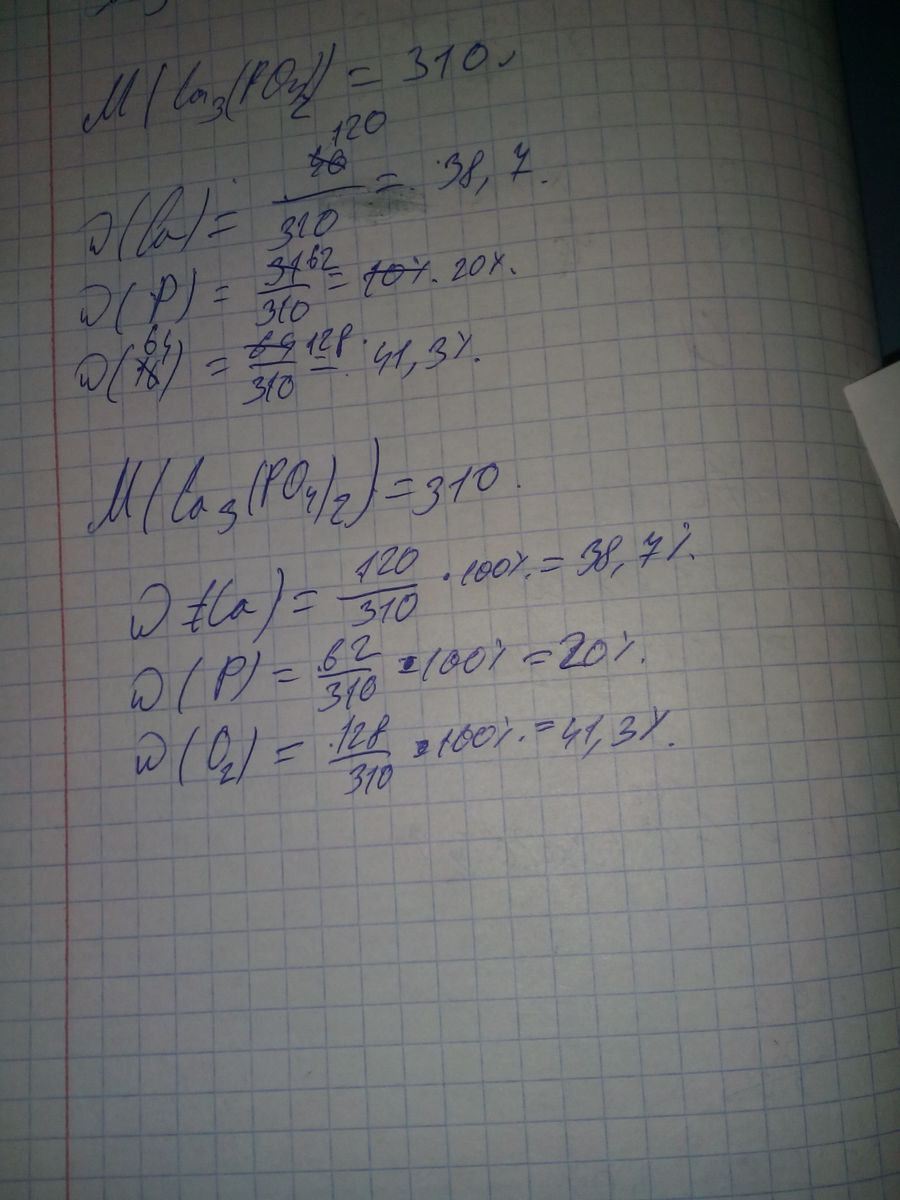 M(Ca3(PO4)2) = 310.
ω(Ca) = 120/310 = 38,7.
ω(P) = 62/310 = 20%.
ω(64) = 128/310 = 41,3%.
M(Ca3(PO4)2) = 310.
ω(Ca) = 120/310 · 100% = 38,7%.
ω(P) = 62/310 · 100% = 20%.
ω(O2) = 128/310 · 100% = 41,3%.